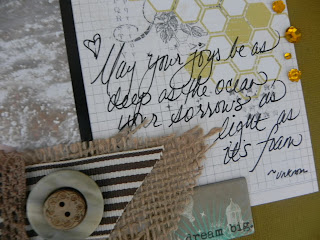 May your joys be as
deep as the ocean
your sorrows as
light as
its foam
~unknown
dream big.